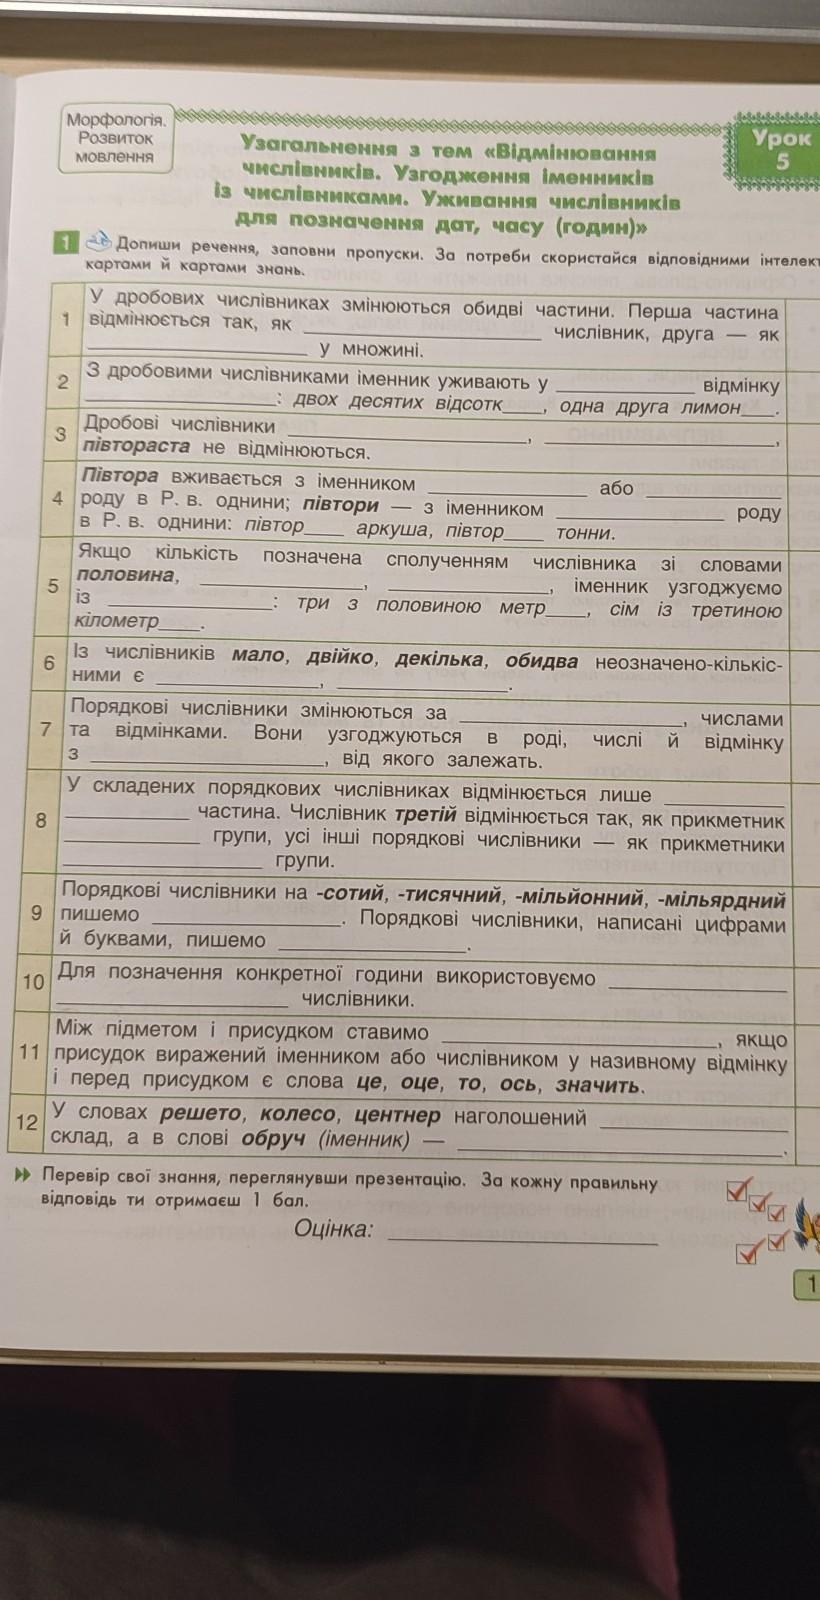 Морфологія.
Розвиток
мовлення
Узагальнення з тем «Відмінювання
числівників. Узгодження іменників
із числівниками. Уживання числівників
для позначення дат, часу (годин)»
Урок
5
1 Допиши речення, заповни пропуски. За потреби скористайся відповідними інтелект
картами й картами знань.
1
У дробових числівниках змінюються обидві частини. Перша частина
відмінюється так, як ____ числівник, друга — як
____ у множині.
2
З дробовими числівниками іменник уживають у ____ відмінку
____: двох десятих відсотк____, одна друга лимон____.
3
Дробові числівники ____, ____,
півтораста не відмінюються.
4
Півтора вживається з іменником ____ або ____
роду в Р. в. однини; півтори — з іменником ____ роду
в Р. в. однини: півтор____ аркуша, півтор____ тонни.
5
Якщо кількість позначена сполученням числівника зі словами
половина, ____, ____, іменник узгоджуємо
із ____: три з половиною метр____, сім із третиною
кілометр____.
6
Із числівників мало, двійко, декілька, обидва неозначено-кількіс-
ними є ____, ____.
7
Порядкові числівники змінюються за ____, числами
та відмінками. Вони узгоджуються в роді, числі й відмінку
з ____, від якого залежать.
8
У складених порядкових числівниках відмінюється лише ____
____ частина. Числівник третій відмінюється так, як прикметник
____ групи, усі інші порядкові числівники — як прикметники
____ групи.
9
Порядкові числівники на -сотий, -тисячний, -мільйонний, -мільярдний
пишемо ____. Порядкові числівники, написані цифрами
й буквами, пишемо ____.
10
Для позначення конкретної години використовуємо ____
____ числівники.
11
Між підметом і присудком ставимо ____, якщо
присудок виражений іменником або числівником у називному відмінку
і перед присудком є слова це, оце, то, ось, значить.
12
У словах решето, колесо, центнер наголошений ____
склад, а в слові обруч (іменник) — ____.
Перевір свої знання, переглянувши презентацію. За кожну правильну
відповідь ти отримаєш 1 бал.
Оцінка: ____
1